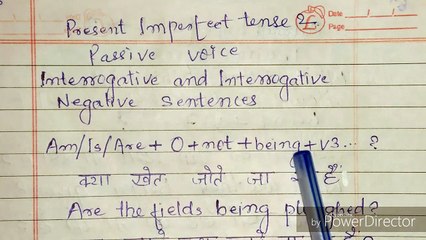 Present Imperfect tense 2.
Date
Page
Passive voice
Interrogative and Interrogative
Negative Sentences
Am/Is/Are + O + not + being + V3... ?
क्या खेत जोते जा हैं
Are the fields being ploughed?
PowerDirector